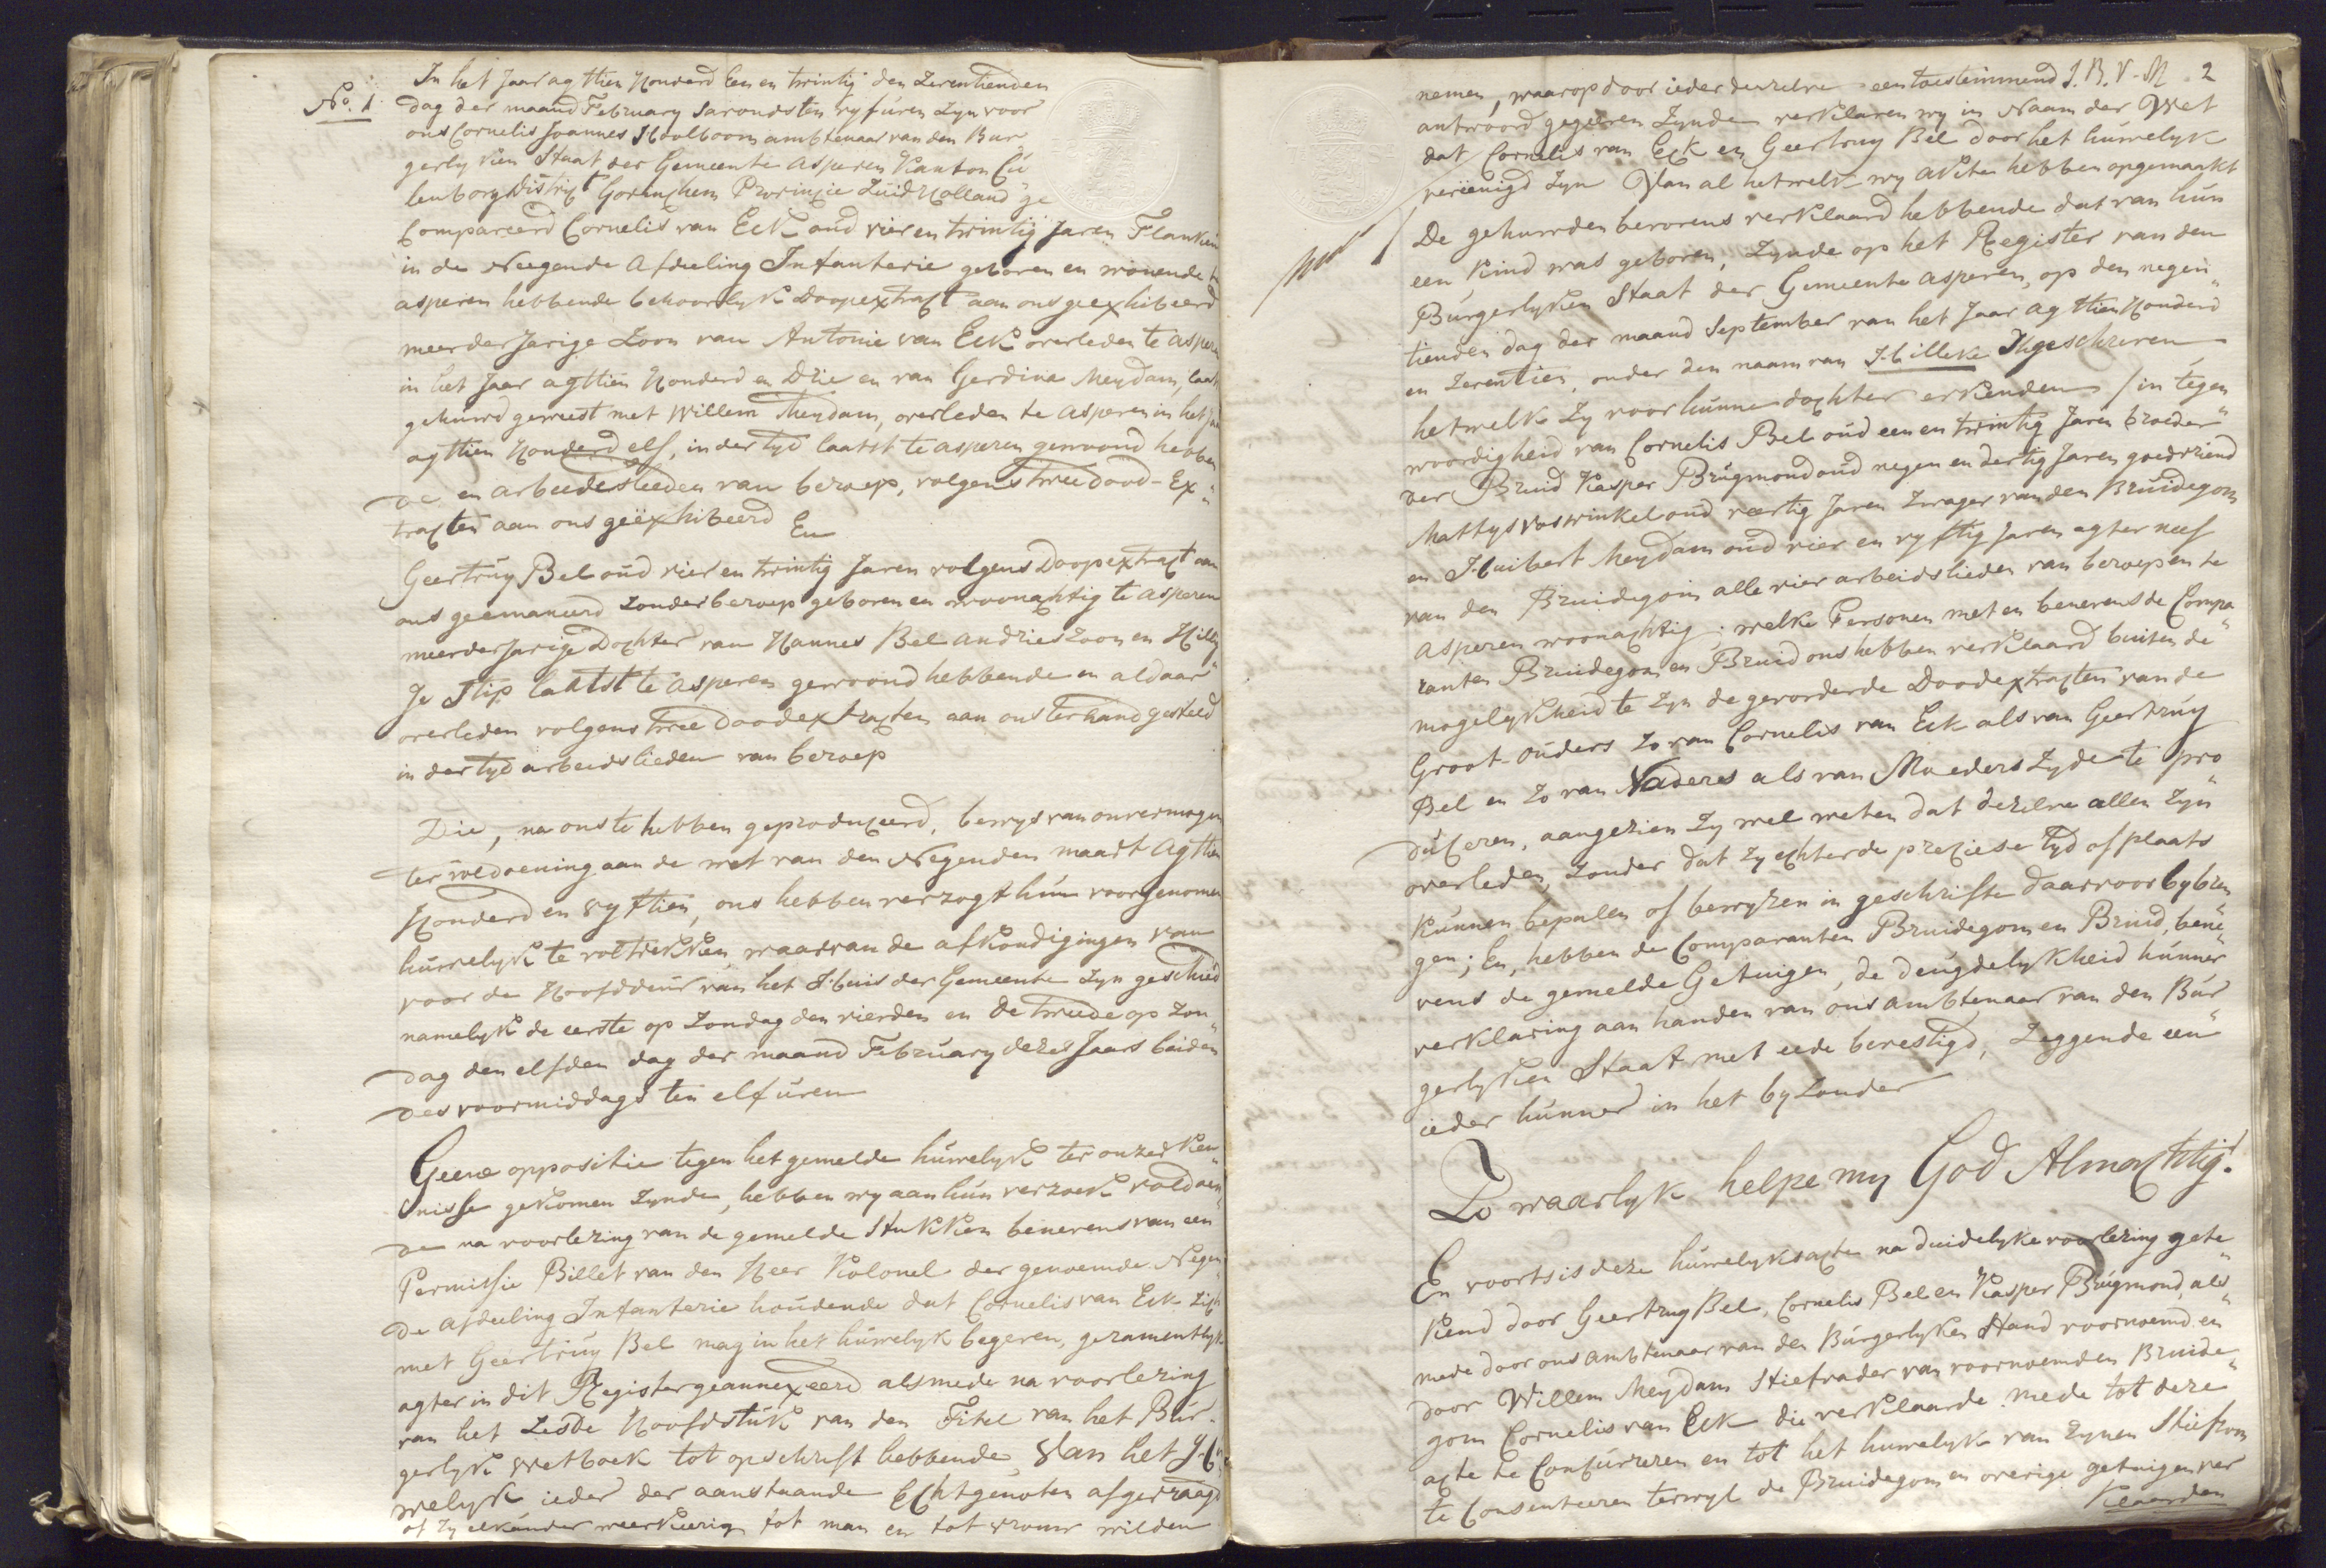 No. 1
In het Jaar agttien Honderd Een en twintig den Zeventienden
dag der maand February savondsten vyf uren Zyn voor
ons Cornelis Joannes Hoolboom ambtenaar van den Bur"
gerlyken Staat der Gemeente Asperen Kanton Cu"
lenborg District Gorinchem Provincie Zuid Holland ge"
Compareerd Cornelis van Eck oud vier en twintig Jaren Flankeur
in de Neegende Afdeeling Infanterie geboren en wonende te
asperen hebbende behoorlyk Doopextract aan ons geexhibeerd
meerderjarige Zoon van Antonie van Eck overleden te Asperen
in het Jaar agttien Honderd en Drie en van Gerdina Meydam, laatst
gehuwd geweest met Willem Meydam, overleden te Asperen in het Jaar
agttien Honderd elf, in der tyd laatst te asperen gewoond hebben
de en arbeidslieden van beroep, volgens twee dood-Ex"
tracten aan ons geëxhibeerd En
Geertruy Bel oud vier en twintig Jaren volgens Doopextract aan
ons geemaneerd Zonder beroep geboren en woonachtig te Asperen
meerderjarige Dochter van Hannes Bel andries zoon en Hilleg
Je Stip laatst te Asperen gewoond hebbende en aldaar"
overleden volgens twee doodextracten aan ons ter hand gesteld
in der tyd arbeidslieden van beroep
Die, na ons te hebben geproduceerd, bewys van onvermogen
ter voldoening aan de wet van den Negenden maart Agttien
Honderd en vyftien, ons hebben verzogt hun voorgenomen
huwelyk te voltrekken, waarvan de afkondigingen van
voor de Hoofddeur van het Huis der Gemeente Zyn geschied
namelyk de eerste op Zondag den vierden en De tweede op Zon"
dag den elfden dag der maand February dezes Jaars beiden
des voormiddags ten elf uren
Geene oppositie tegen het gemelde huwelyk ter onzer Ken"
nisse gekomen Zynde, hebben wy aan hun verzoek voldoen"
de na voorlezing van de gemelde Stukken benevens van een
Permissie Billet van den Heer Kolonel der genoemde Negen"
de Afdeeling Infanterie houdende dat Cornelis van Eck Zich
met Geertruy Bel mag in het huwelyk begeven, gezamentlyk
agter in dit Register geannexeerd alsmede na voorlezing
van het Zesde Hoofdstuk van den Titel van het Bur-
gerlyk Wetboek tot opschrift hebbende, Van het Hu"
welyk ieder der aanstaande Echtgenoten afgevraagd
of Zy elkander weerkeerig tot man en tot vrouw wilden
J. B. V. M 2
nemen, waarop door ieder derzelve een toestemmend
antwoord gegeven Zynde verklaren wy in Naam der Wet
dat Cornelis van Eck en Geertruy Bel door het huwelyk
vereenigd Zyn Van al hetwelk wy Akte hebben opgemaakt
De gehuwden bevorens verklaard hebbende dat van hun
een Kind was geboren, Zynde op het Register van den
Burgerlyken Staat der Gemeente Asperen, op den negen"
tienden dag der maand September van het Jaar agttien Honderd
en Zeventien, onder den naam van Hilleke Ingeschreven
hetwelk Zy voor hunne dochter erkenden / in tegen
woordigheid van Cornelis Bel oud een en twintig Jaren broeder"
der Bruid Kasper Brugmond oud negen en dertig Jaren goedvriend
Mattys Voswinkel oud veertig Jaren Zwager van den Bruidegom
en Huibert Meydam oud vier en vyftig Jaren agter neef
van den Bruidegom alle vier arbeidslieden van beroep en te
Asperen woonachtig; welke Personen met en benevens de Compa"
ranten Bruidegom en Bruid ons hebben verklaard buiten de"
mogelykheid te Zyn de gevorderde Doodextracten van de
Groot-ouders Zo van Cornelis van Eck als van Geertruy
Bel en Zo van Vaders als van Moeders Zyde te pro"
duceren, aangezien Zy wel weten dat dezelve allen Zyn
overleden, Zonder dat Zy echter de preciese tyd of plaats
kunnen bepalen of bewyzen in geschrifte daarvoor bybren
gen; En, hebben de Comparanten Bruidegom en Bruid, bene"
vens de gemelde Getuigen, de deugdelykheid hunner
verklaring aan handen van ons ambtenaar van den Bur"
gerlyken Staat met eede bevestigd, Zeggende een"
ieder hunner in het byzonder
Zo waarlyk helpe my God Almachtig!
En voorts is deze huwelyksacte na duidelyke voorlezing gete"
kend door Geertruy Bel, Cornelis Bel en Kasper Brugmond, als"
mede door ons ambtenaar van den Burgerlyken Stand voornoemd en
door Willem Meydam Stiefvader van voornoemden Bruide"
gom Cornelis van Eck die verklaarde mede tot deze
acte te Concurreren en tot het huwelyk van Zynen Stiefzoon
te Consenteeren terwyl de Bruidegom en overige getuigen ver
klaarden